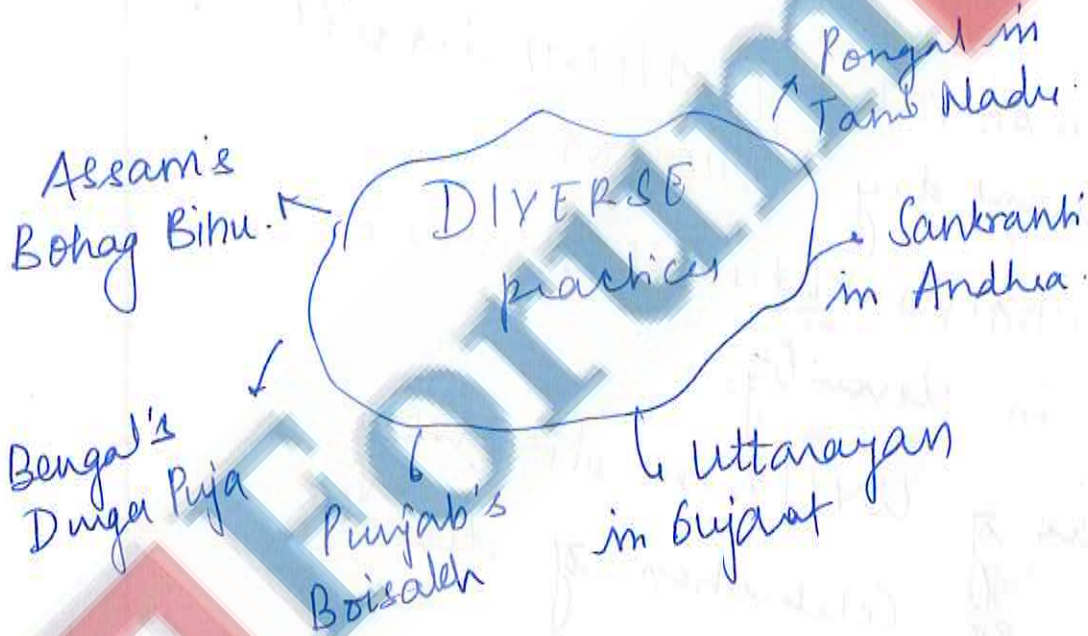 DIVERSE
practices
Pongal in
Tamil Nadu.
Sankranti
in Andhra.
Uttarayan
in Gujarat
Punjab's
Boisakh
Bengal's
Durga Puja
Assam's
Bohag Bihu.
Forum